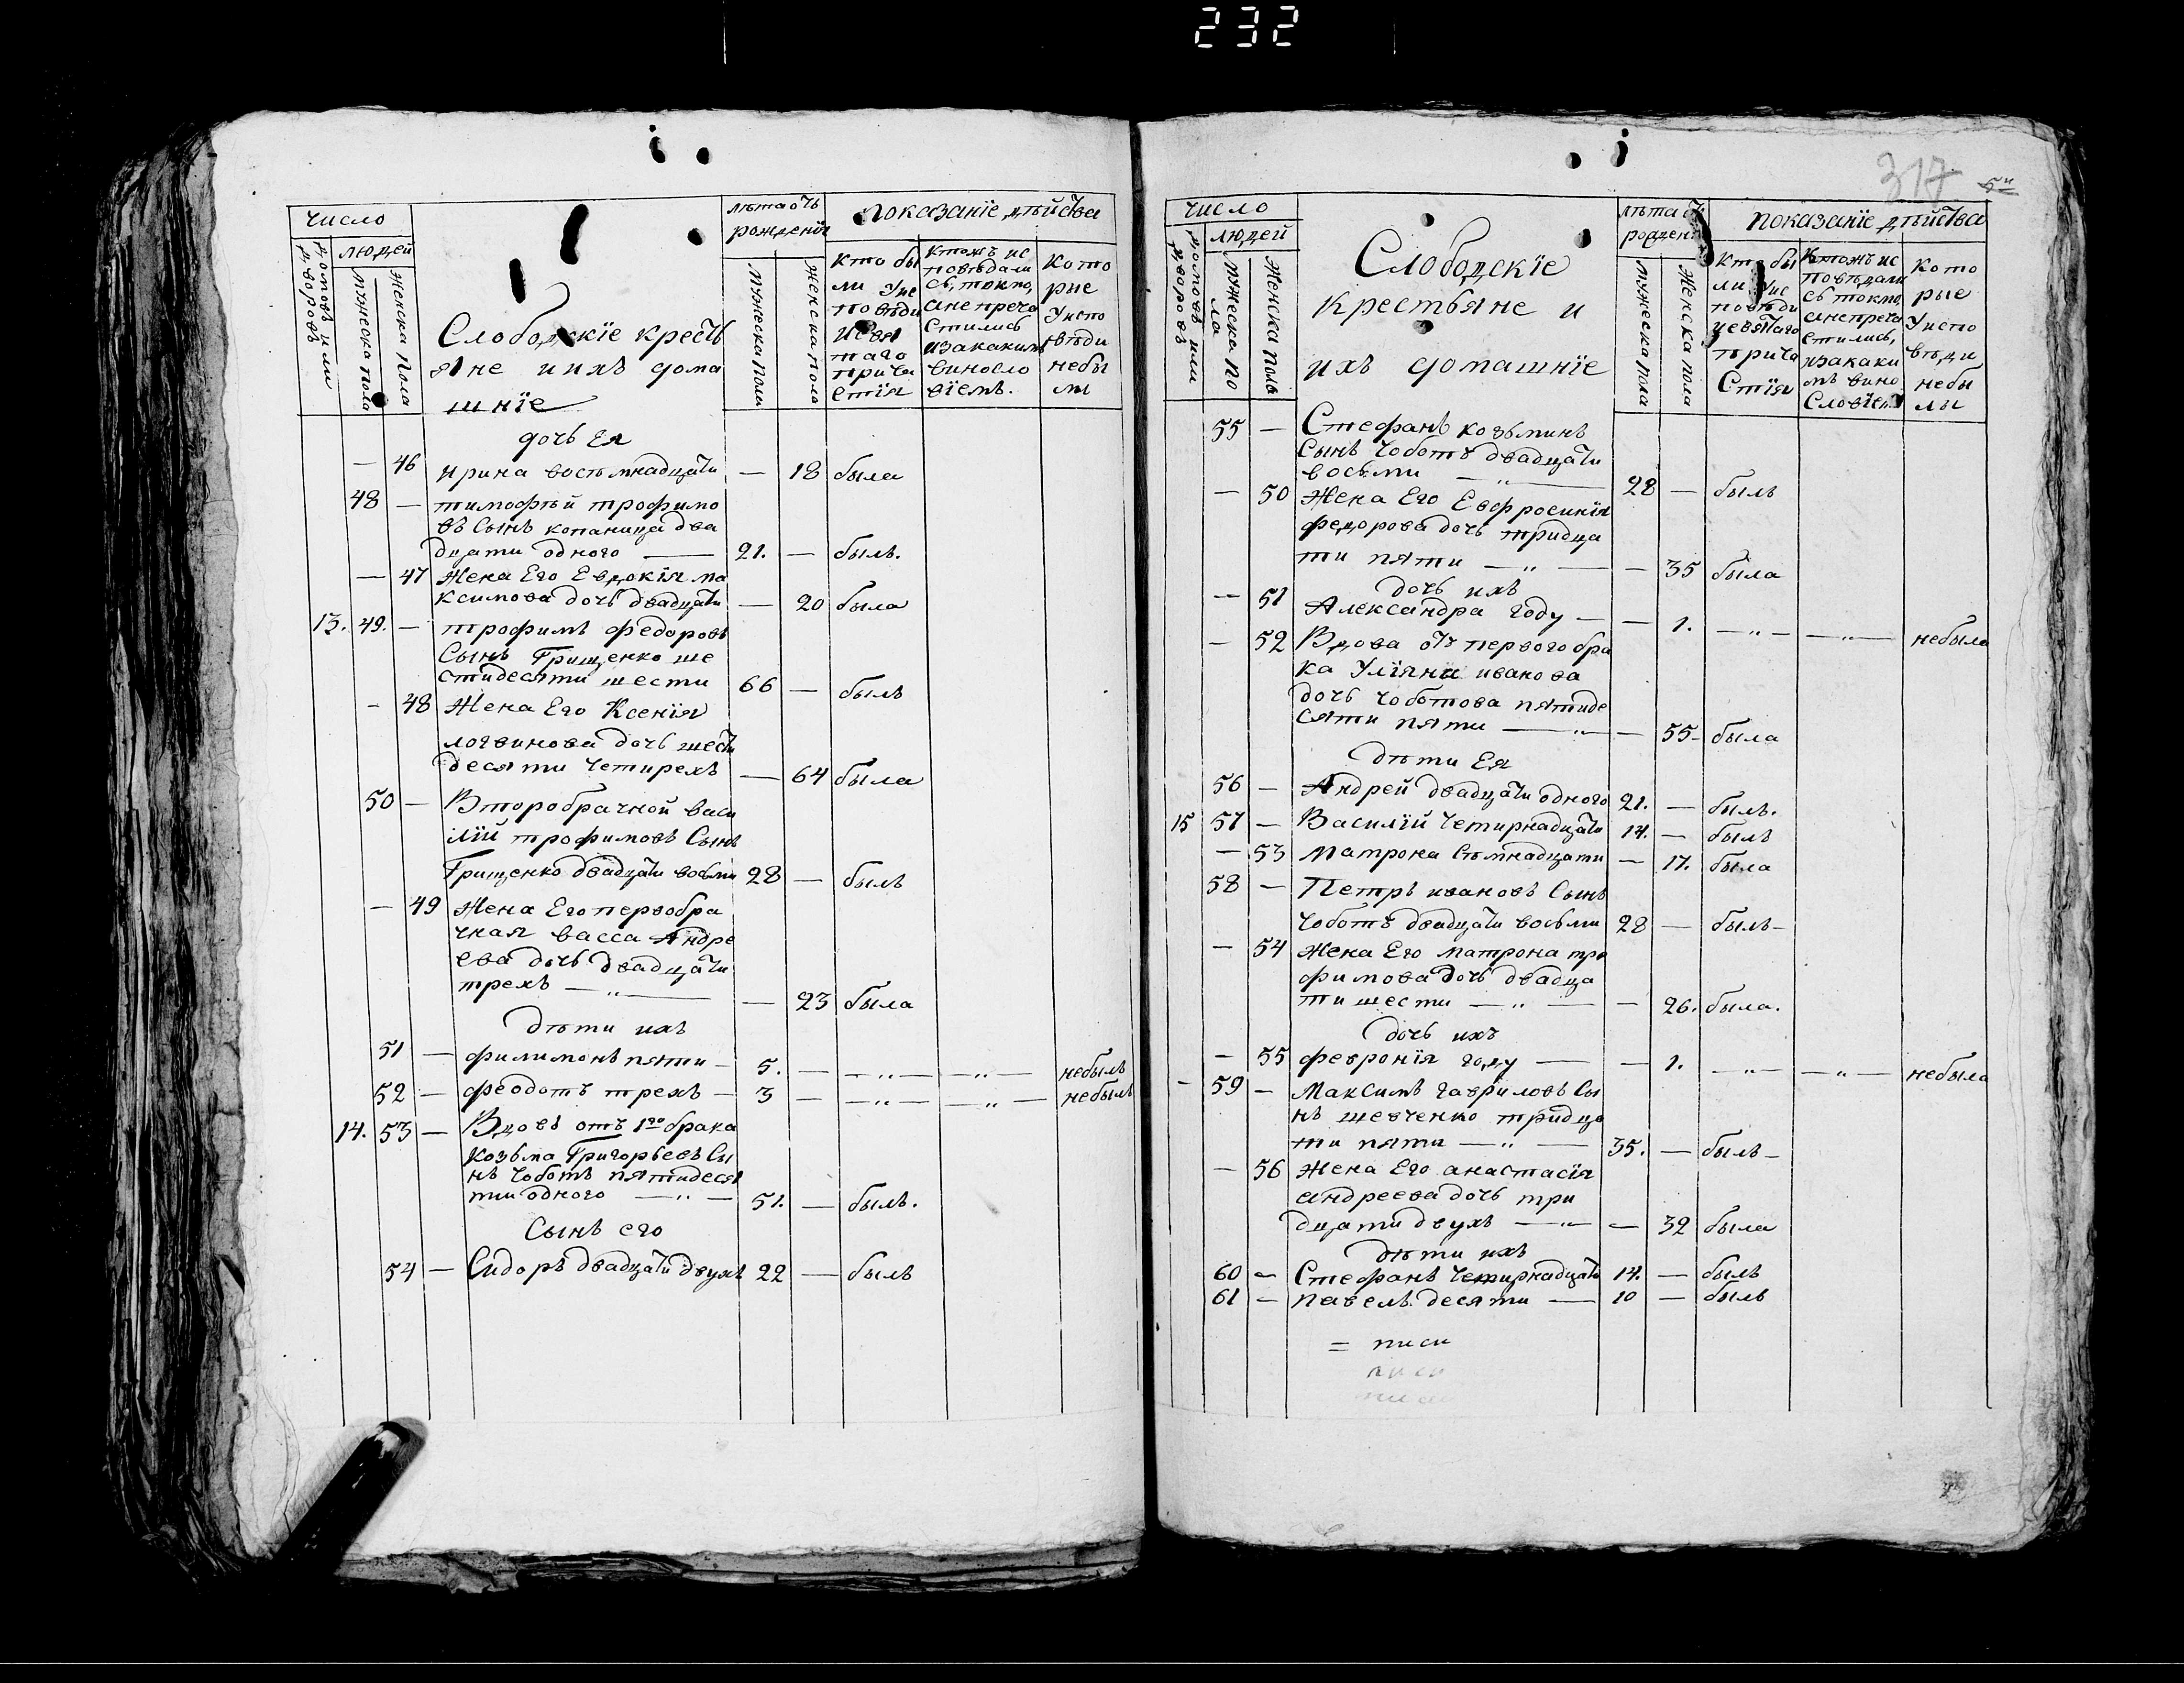 232
число
людей
домовъ или дворовъ
мужеска пола
женска пола
Слободскїе кресть
яне и ихъ дома
шнїе
лѣта отъ
рожденїя
мужеска пола
женска пола
показанїе дѣйства
кто бы
ли у ис
повѣди
и свя
таго
прича
стїя
ктожъ ис
повѣдали
сь, токмо,
а не прича
стились
и за какимъ
винословїемъ.
кото
рие
у испо
вѣди
небы
ли
дочь Ея
46 Ирина восьмнадцати — 18 была
48 — тимофѣй трофимо
въ Сынъ копаница два
дцати одного — 21. — былъ.
— 47 Жена Его Евдокія ма
ксимова дочь двадцати — 20 была
13. 49. — трофимъ федоровъ
Сынъ Грищенко ше
стидесяти шести 66 — былъ
- 48 Жена Его Ксенїя
логвинова дочь шесть
десяти четирехъ — 64 была
50 — Второбрачной васи
лїй трофимовъ Сынъ
Грищенко двадцати восьми 28 — былъ
— 49 Жена Его первобра
чная васса Андре
ева дочь двадцати
трехъ — „ — — 23 была
дѣти ихъ
51 — филимонъ пяти — 5. — — „ — — „ — небылъ
52 — феодотъ трехъ — 3 — — „ — — „ — небылъ
14. 53 — Вдовъ отъ 1го брака
козьма Григорьевъ Сы
нъ Чоботъ пятидеся
ти одного — „ — 51. — былъ.
Сынъ его
54 — Сидоръ двадцати двухъ 22 — былъ
317
число
людей
домовъ или дворовъ
мужеска по
ла
женска полъ
Слободскїе
крестьяне и
ихъ домашнїе
лѣта отъ
рожденї
мужеска пола
женска пола
показанїе дѣйства
кто бы
ли у ис
повѣди
и святаго
прича
Стїя
Ктожъ ис
повѣдали
сь токмо,
а не прича
стились,
и за каки
мъ вино
Словїем
кото
рые
у испо
вѣди
небы
лы
55 — Стефанъ козьминъ
Сынъ Чоботъ двадцати
восьми — „ — 28 — былъ
— 50 Жена Его Евфросинїя
федорова дочь тридца
ти пяти — „ — — 35 была
дочь ихъ
— 51 Александра году — — 1. — „ — — „ — небыла
— 52 Вдова отъ первого бра
ка Улїяна иванова
дочь Чоботова пятиде
сяти пяти — „ — — 55- была
дѣти Ея
56 — Андрей двадцати одного 21. — былъ.
15 57 — Василїй четирнадцати 14. — былъ
— 53 Матрона Семнадцати — 17. была
58 — Петръ ивановъ Сынъ
Чоботъ двадцати восьми 28 — былъ-
— 54 Жена Его матрона тро
фимова дочь двадца
ти шести — „ — — 26. была.
дочь ихъ
— 55 февронїя году — — 1. — „ — — „ — небыла
- 59 — Максимъ гавриловъ Сы
нъ шевченко тридца
ти пяти — „ — 35. — былъ-
— 56 Жена Его анастасїя
андреева дочь три
дцати двухъ — „ — — 32 была
дѣти ихъ
60 — Стефанъ Четирнадцать 14. — былъ
61 — павелъ десяти — 10 — былъ
= писи
писи